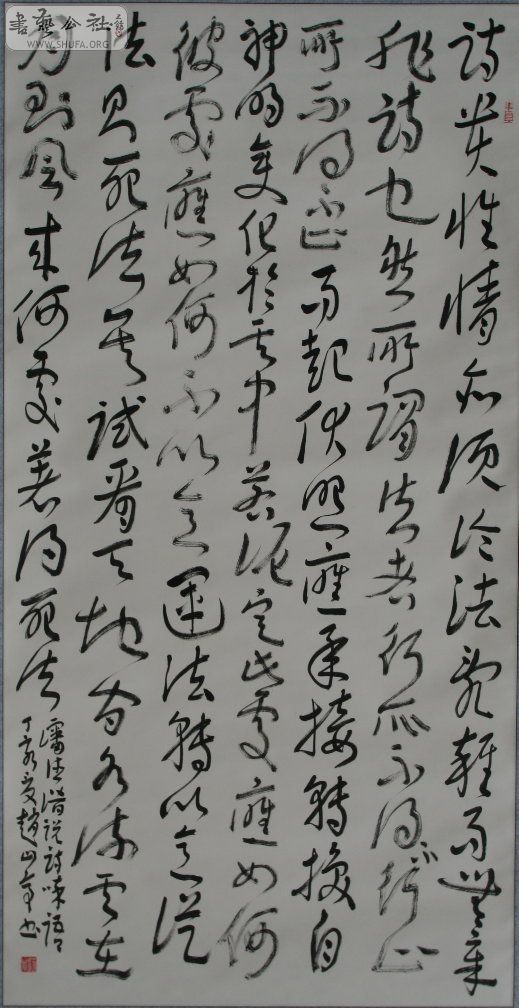 書藝公社
WWW.SHUFA.ORG
詩貴性情亦須論法亂雜而無章
非詩也然所謂法者行所不得不行止
所不得不止而起伏照應承接轉換自
神明變化於其中若泥定此處應如何
彼處應如何不以意運法轉以意從
法則死法矣試看天地間水流雲在
月到風來何處著得死法
瀋德潛說詩晬語
丁亥夏趙山亭書